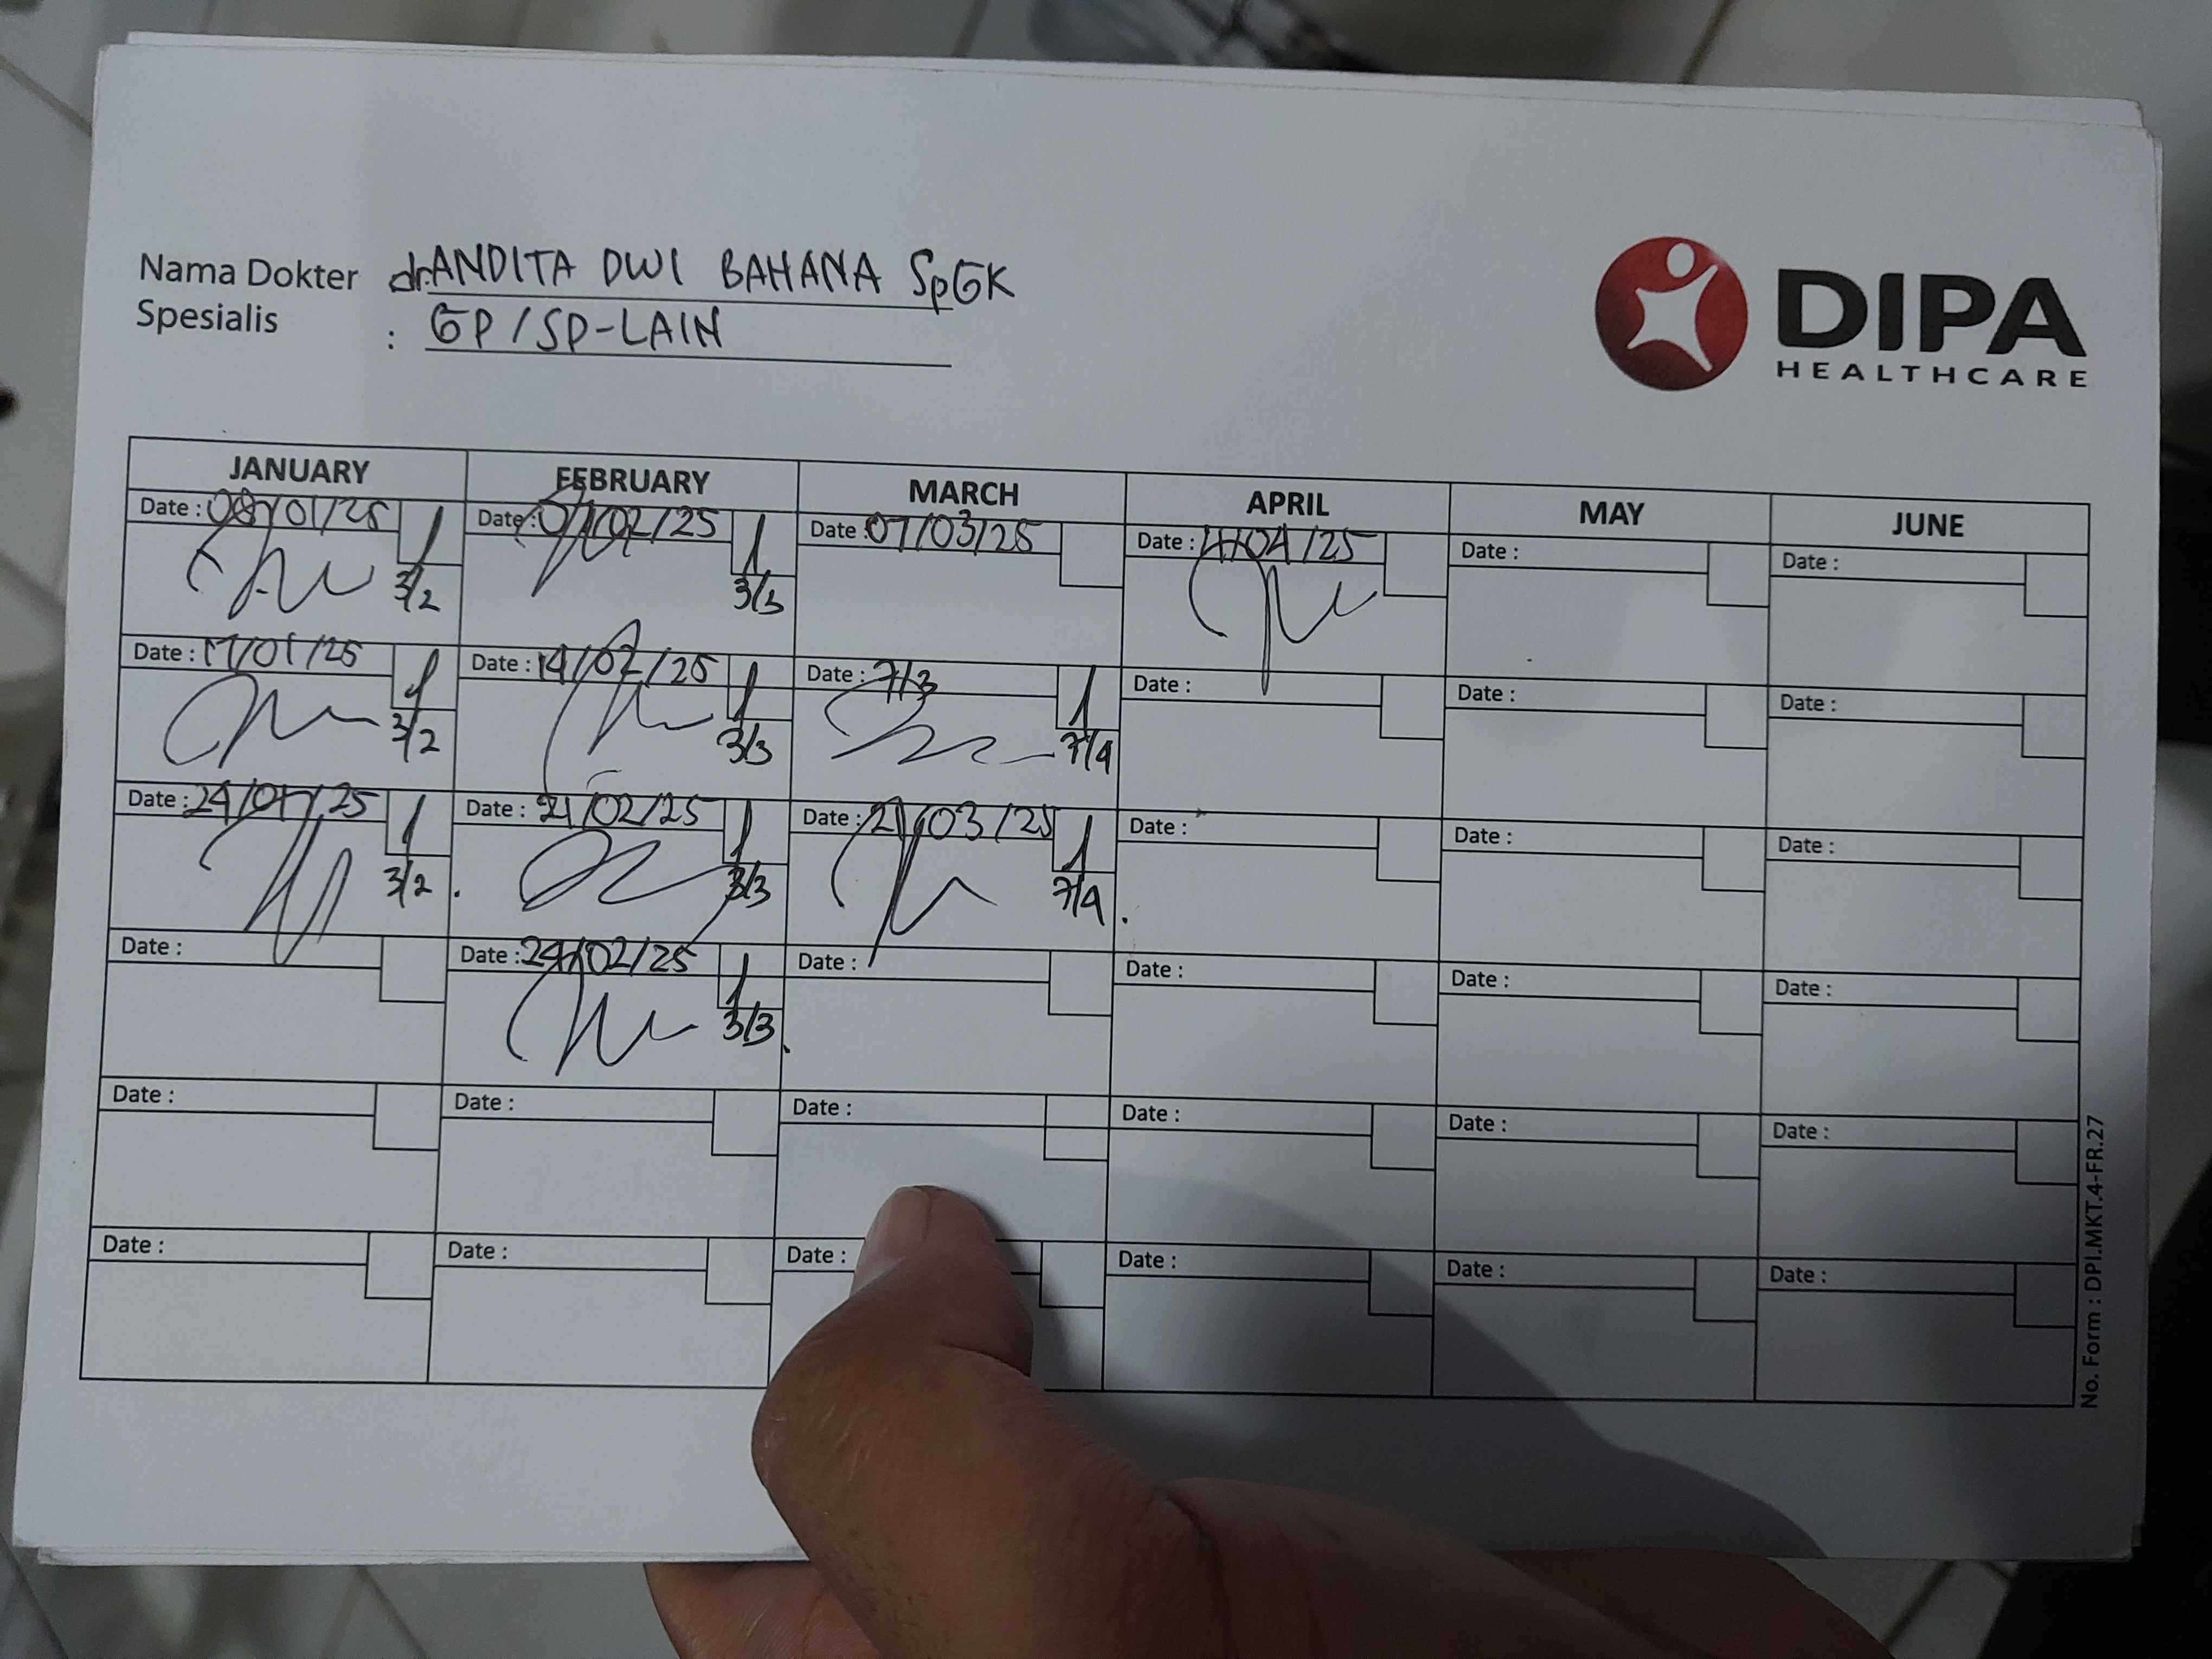 Nama Dokter dr. ANDITA DWI BAHANA SpGK
Spesialis : GP/SP-LAIN
DIPA
HEALTHCARE
JANUARY FEBRUARY MARCH APRIL MAY JUNE
Date : 08/01/25 Date : 07/02/25 Date : 07/03/25 Date : 4/04/25 Date : Date :
3/2 3/3
Date : 17/01/25 Date : 14/02/25 Date : 7/3 Date : Date : Date :
3/2 3/3 7/4
Date : 24/01/25 Date : 21/02/25 Date : 21/03/25 Date : Date : Date :
3/2 3/3 7/4
Date : Date : 24/02/25 Date : Date : Date : Date :
3/3
Date : Date : Date : Date : Date : Date :
Date : Date : Date : Date : Date : Date :
No. Form : DPI.MKT.4-FR.27